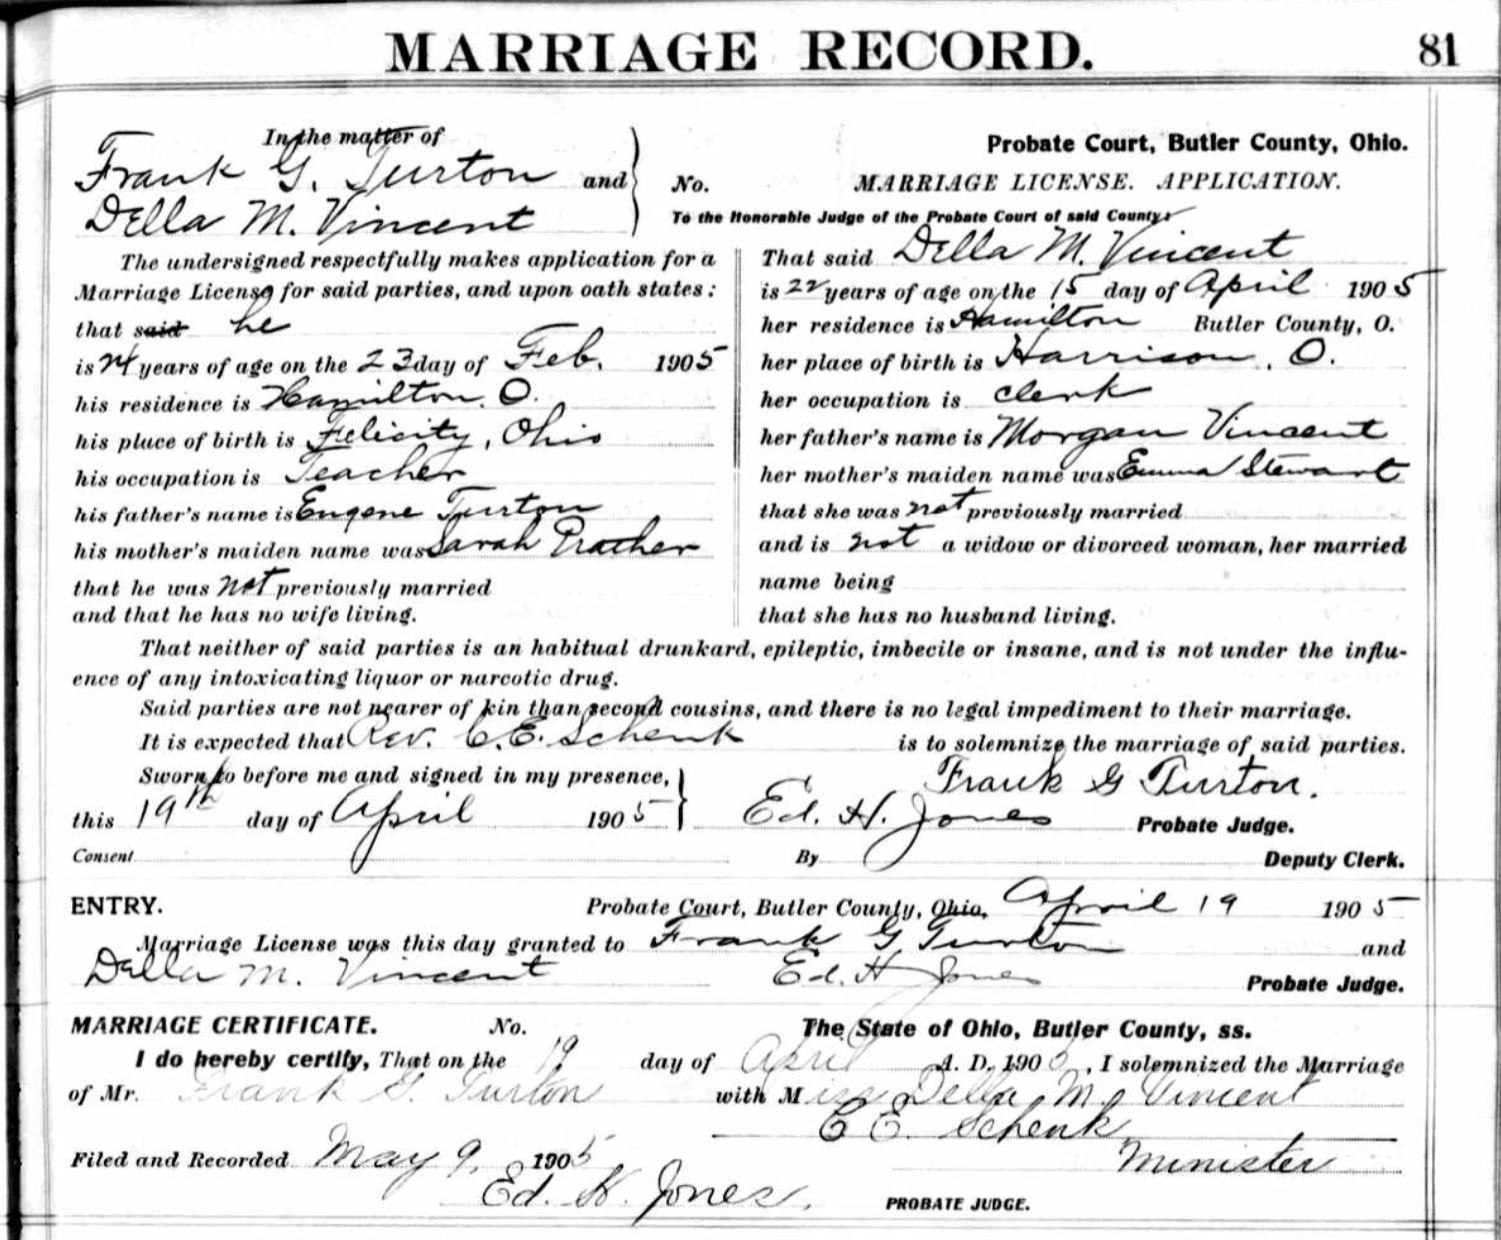 MARRIAGE RECORD. 81
In the matter of
Frank G. Turton and
Della M. Vincent
Probate Court, Butler County, Ohio.
No. MARRIAGE LICENSE. APPLICATION.
To the Honorable Judge of the Probate Court of said County:
The undersigned respectfully makes application for a
Marriage License for said parties, and upon oath states:
that said he
is 24 years of age on the 23 day of Feb. 1905
his residence is Hamilton. O.
his place of birth is Felicity, Ohio
his occupation is Teacher
his father's name is Eugene Turton
his mother's maiden name was Sarah Prather
that he was not previously married
and that he has no wife living.
That said Della M. Vincent
is 22 years of age on the 15 day of April 1905
her residence is Hamilton Butler County, O.
her place of birth is Harrison, O.
her occupation is clerk
her father's name is Morgan Vincent
her mother's maiden name was Emma Stewart
that she was not previously married
and is not a widow or divorced woman, her married
name being
that she has no husband living.
That neither of said parties is an habitual drunkard, epileptic, imbecile or insane, and is not under the influ-
ence of any intoxicating liquor or narcotic drug.
Said parties are not nearer of kin than second cousins, and there is no legal impediment to their marriage.
It is expected that Rev. C. E. Schenk is to solemnize the marriage of said parties.
Sworn to before me and signed in my presence, Frank G Turton.
this 19th day of April 1905 Ed. H. Jones Probate Judge.
Consent By Deputy Clerk.
ENTRY. Probate Court, Butler County, Ohio, April 19 1905
Marriage License was this day granted to Frank G Turton and
Della M. Vincent Ed. H Jones Probate Judge.
MARRIAGE CERTIFICATE. No. The State of Ohio, Butler County, ss.
I do hereby certify, That on the 19 day of April A. D. 190 , I solemnized the Marriage
of Mr. Frank G. Turton with Miss Della M. Vincent
C E. Schenk
Filed and Recorded May 9, 1905 Minister
Ed. H. Jones. PROBATE JUDGE.